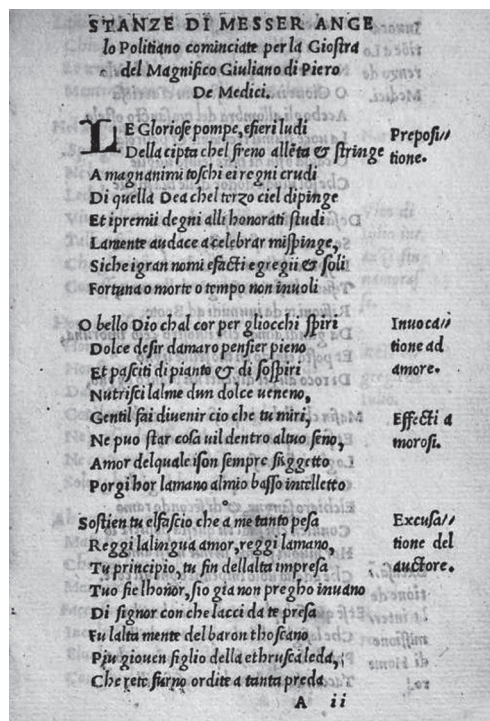 STANZE DI MESSER ANGE
lo Politiano cominciate per la Gioſtra
del Magnifico Giuliano di Piero
De Medici.
LE Glorioſe pompe, efieri ludi
Della cipta chel freno allẽta & ſtringe
A magnanimi toſchi ei regni crudi
Di quella Dea chel terzo ciel dipinge
Et ipremii degni alli honorati ſtudi
Lamente audace acelebrar miſpinge,
Siche igran nomi efacti egregii & ſoli
Fortuna o morte o tempo non inuoli
Prepoſi//
tione.
O bello Dio chal cor per gliocchi ſpiri
Dolce deſir damaro penſier pieno
Et paſciti di pianto & di ſoſpiri
Nutriſci lalme dun dolce ueneno,
Gentil fai diuenir cio che tu miri,
Ne puo ſtar coſa uil dentro altuo ſeno,
Amor delquale iſon ſempre ſuggetto
Porgi hor lamano almio baſſo intelletto
Inuoca//
tione ad
amore.
Effecti a
moroſi.
Soſtien tu elfaſcio che a me tanto peſa
Reggi lalingua amor, reggi lamano,
Tu principio, tu fin dellalta impreſa
Tuo fie lhonor, ſio gia non pregho inuano
Di ſignor con che lacci da te preſa
Fu lalta mente del baron thoſcano
Piu giouen figlio della ethruſca leda,
Che rete furno ordite a tanta preda
Excuſa//
tione del
auctore.
A ii